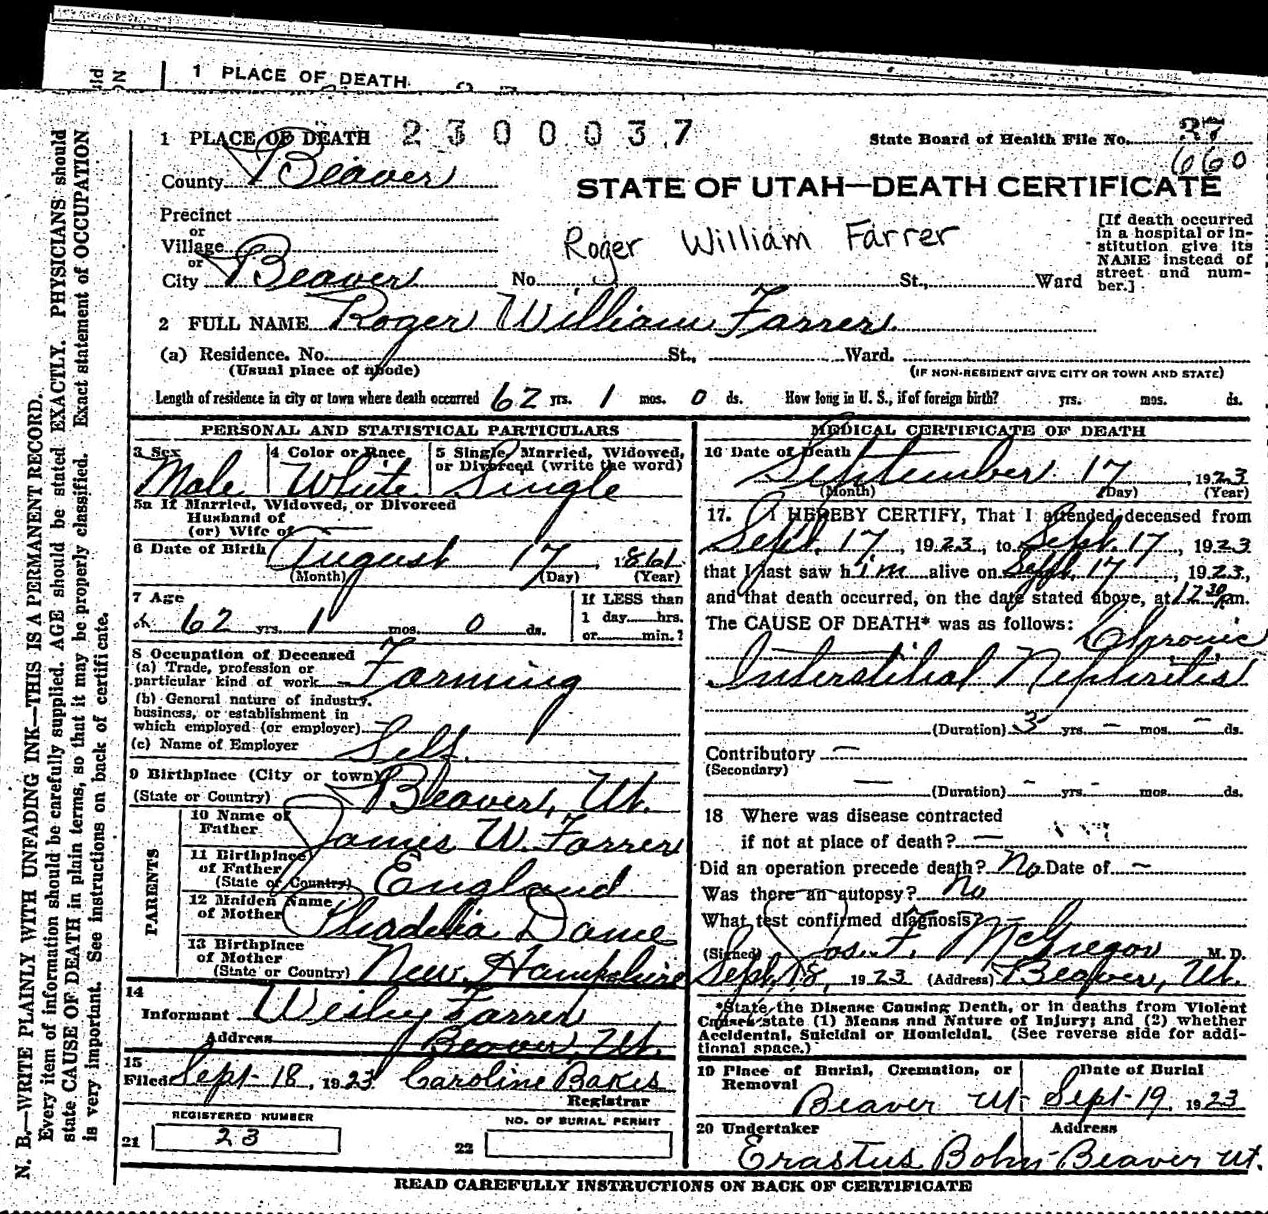 1 PLACE OF DEATH
1 PLACE OF DEATH 2300037
State Board of Health File No. 37
660
County Beaver
STATE OF UTAH—DEATH CERTIFICATE
Precinct
or
Village
or
City Beaver No. St., Ward
Roger William Farrer
[If death occurred in a hospital or in-
stitution give its
NAME instead of
street and num-
ber.]
2 FULL NAME Roger William Farrer
(a) Residence. No. St., Ward.
(Usual place of abode) (IF NON-RESIDENT GIVE CITY OR TOWN AND STATE)
Length of residence in city or town where death occurred 62 yrs. 1 mos. 0 ds. How long in U. S., if of foreign birth? yrs. mos. ds.
PERSONAL AND STATISTICAL PARTICULARS
3 Sex 4 Color or Race 5 Single, Married, Widowed,
or Divorced (write the word)
Male White Single
5a If Married, Widowed, or Divorced
Husband of
(or) Wife of —
6 Date of Birth August 17, 1861
(Month) (Day) (Year)
7 Age If LESS than
1 day hrs.
or min.?
62 yrs. 1 mos. 0 ds.
8 Occupation of Deceased
(a) Trade, profession or
particular kind of work Farming
(b) General nature of industry,
business, or establishment in
which employed (or employer)
(c) Name of Employer Self.
9 Birthplace (City or town) Beaver, Ut.
(State or Country)
PARENTS
10 Name of
Father James W. Farrer
11 Birthplace
of Father England
(State or Country)
12 Maiden Name
of Mother Dame
13 Birthplace
of Mother
(State or Country) New Hampshire
14
Informant Wesley Farrer
Address Beaver, Ut.
15
Filed Sept-18, 1923 Caroline Bakes
Registrar
REGISTERED NUMBER NO. OF BURIAL PERMIT
21 23 22
MEDICAL CERTIFICATE OF DEATH
16 Date of Death
September 17, 1923
(Month) (Day) (Year)
17. I HEREBY CERTIFY, That I attended deceased from
Sept. 17, 1923, to Sept. 17, 1923
that I last saw him alive on Sept. 17, 1923,
and that death occurred, on the date stated above, at 12 30 pm.
The CAUSE OF DEATH* was as follows: Chronic
Interstitial Nephritis
(Duration) 3 yrs. — mos. — ds.
Contributory —
(Secondary)
— (Duration) - yrs. - mos. ds.
18 Where was disease contracted
if not at place of death? —
Did an operation precede death? No Date of —
Was there an autopsy? No
What test confirmed diagnosis? —
(Signed) Jos. F. McGregor M. D.
Sept, 18, 1923 (Address) Beaver, Ut.
*State the Disease Causing Death, or in deaths from Violent
Causes state (1) Means and Nature of Injury; and (2) whether
Accidental, Suicidal or Homicidal. (See reverse side for addi-
tional space.)
19 Place of Burial, Cremation, or
Removal Date of Burial
Beaver Ut- Sept-19, 1923
20 Undertaker Address
Erastus Bohn- Beaver Ut.
READ CAREFULLY INSTRUCTIONS ON BACK OF CERTIFICATE
N. B.—WRITE PLAINLY WITH UNFADING INK—THIS IS A PERMANENT RECORD.
Every item of information should be carefully supplied. AGE should be stated EXACTLY. PHYSICIANS should
state CAUSE OF DEATH in plain terms, so that it may be properly classified. Exact statement of OCCUPATION
is very important. See instructions on back of certificate.